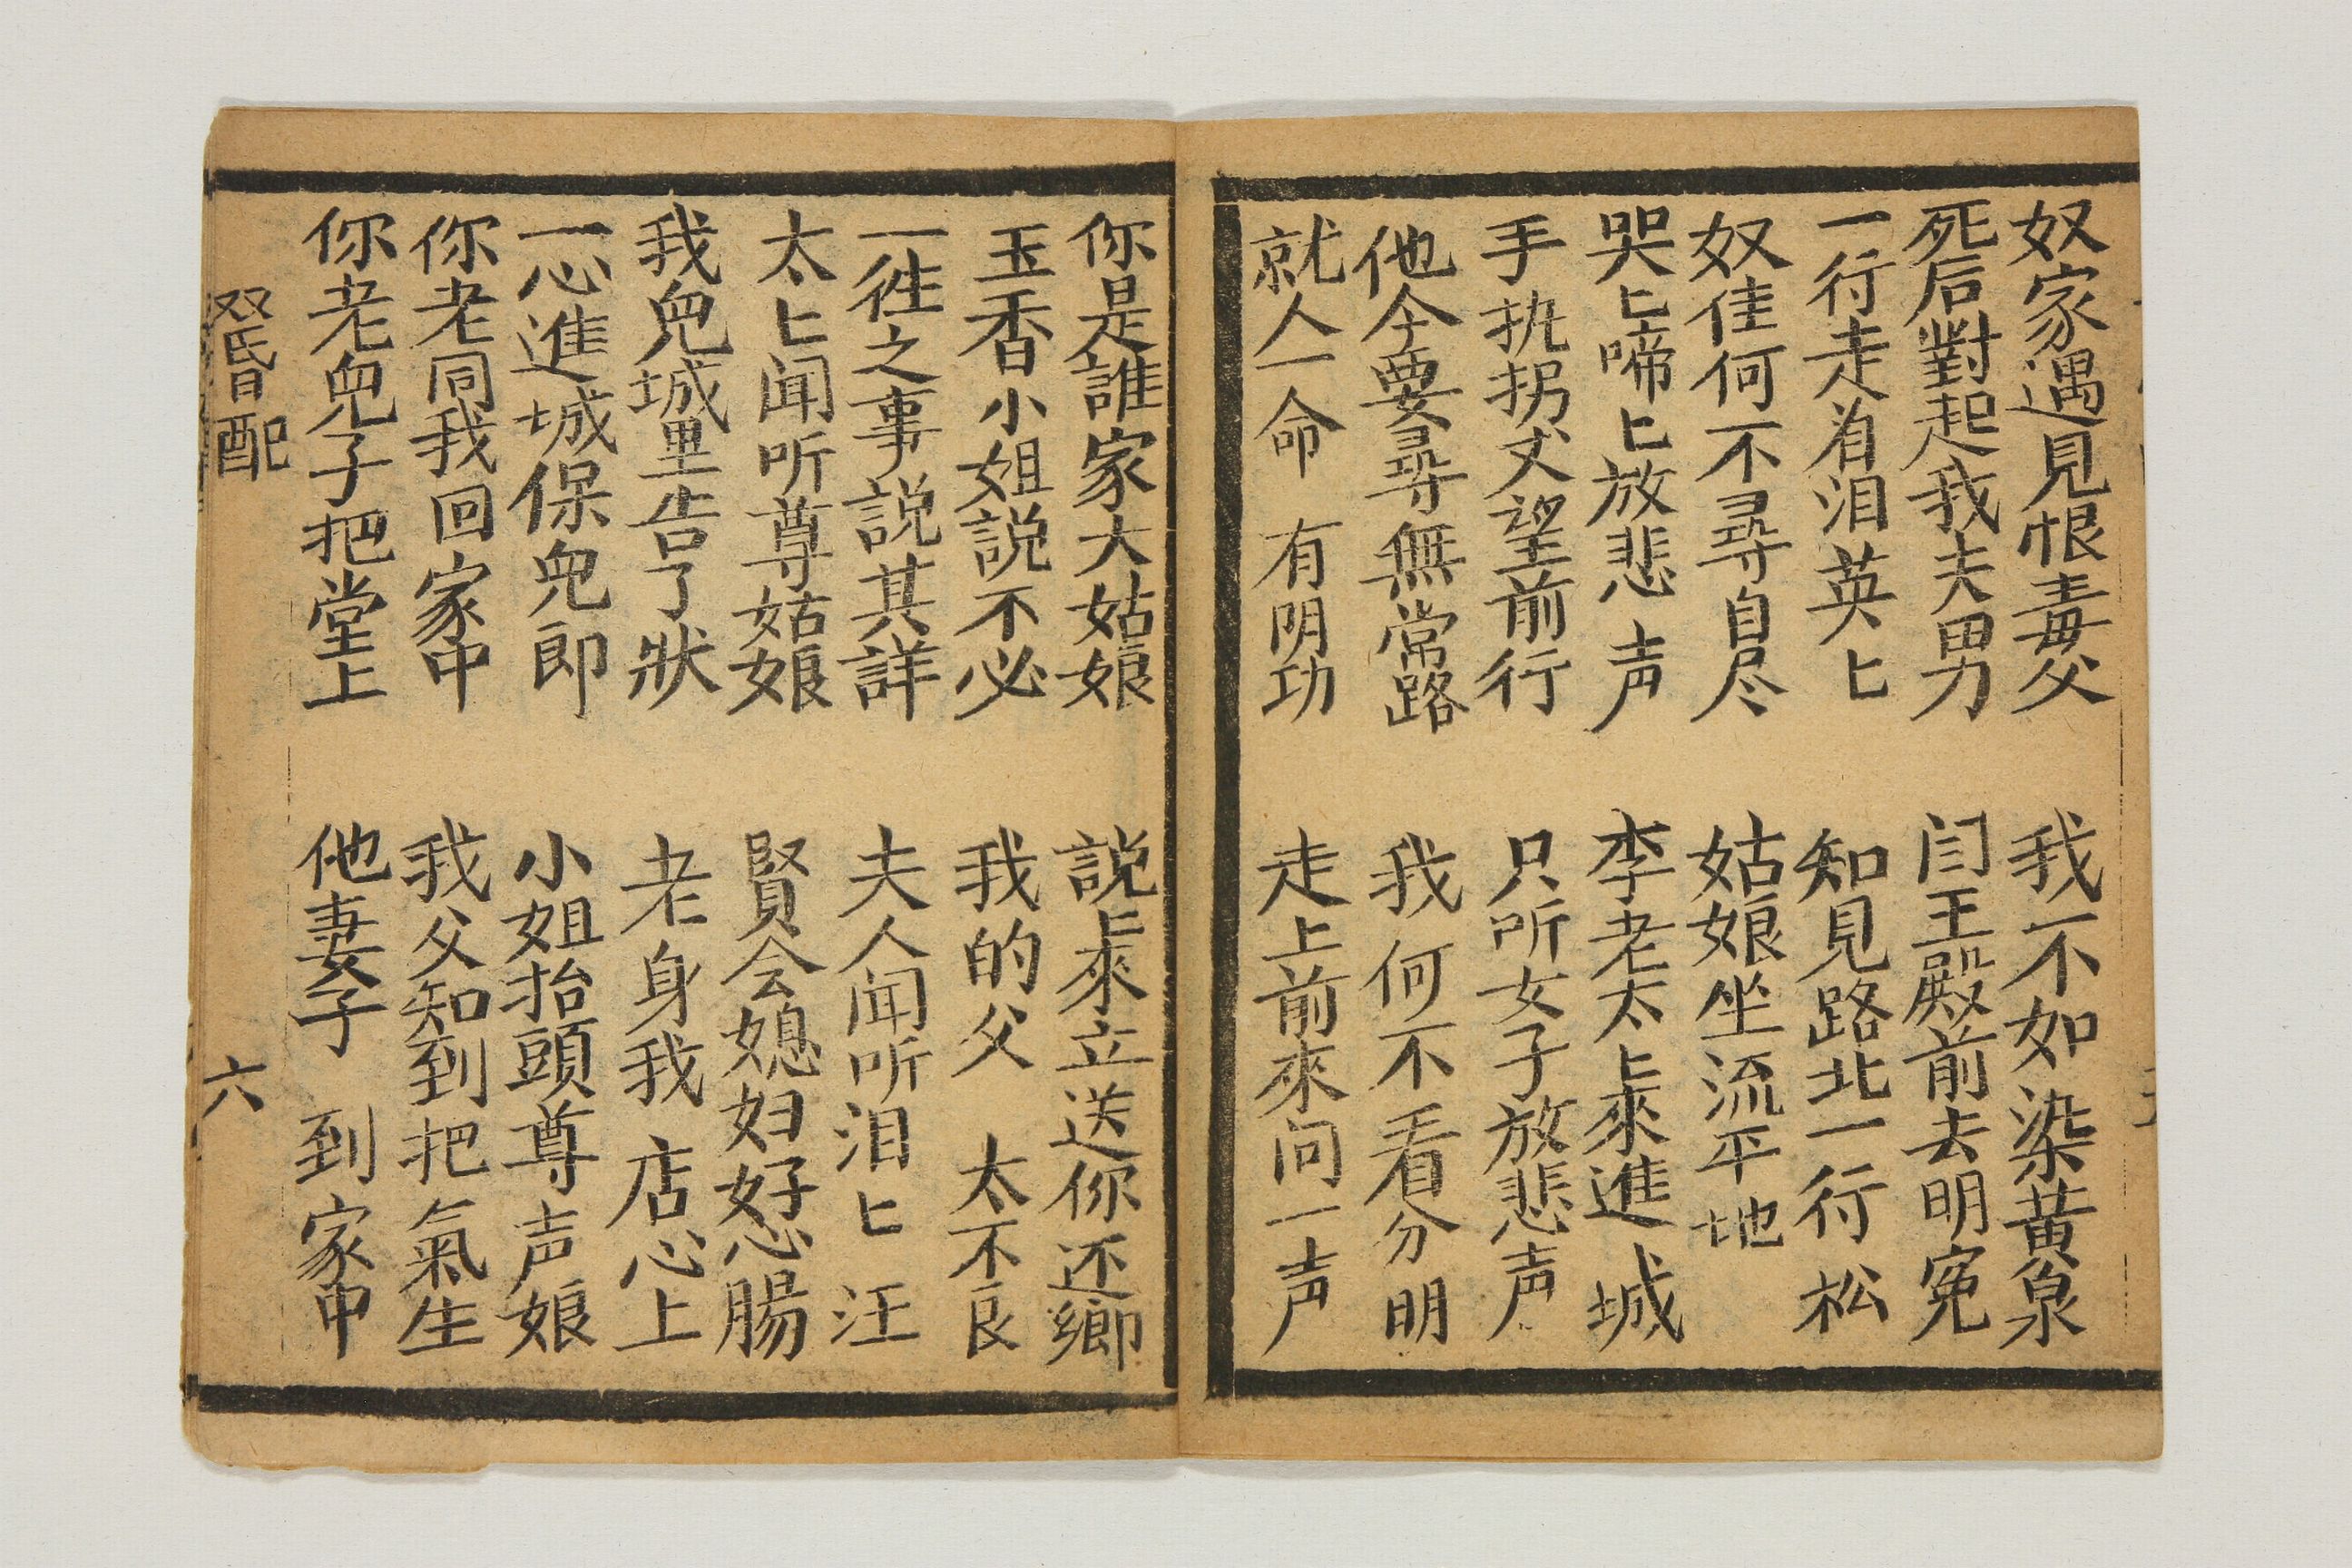 奴家遇見恨毒父　我不如染黄泉
死后對起我夫男　闫王殿前去明冤
一行走着泪英匕　知見路北一行松
奴佳何不尋自尽　姑娘坐流平地
哭匕啼匕放悲声　李老太上來進城
手执拐丈望前行　只听女子放悲声
他今要尋無常路　我何不看分明
就人一命有明功　走上前來问一声
你是誰家大姑娘　説上來立送你还鄉
玉香小姐説不必　我的父太不良
一徃之事説其詳　夫人闻听泪匕汪
太匕闻听尊姑娘　賢会媳妇好心腸
我兒城里告了狀　老身我店心上
一心進城保兒郎　小姐抬頭尊声娘
你老同我回家中　我父知到把氣生
你老兒子把堂上　他妻子到家中
配
六